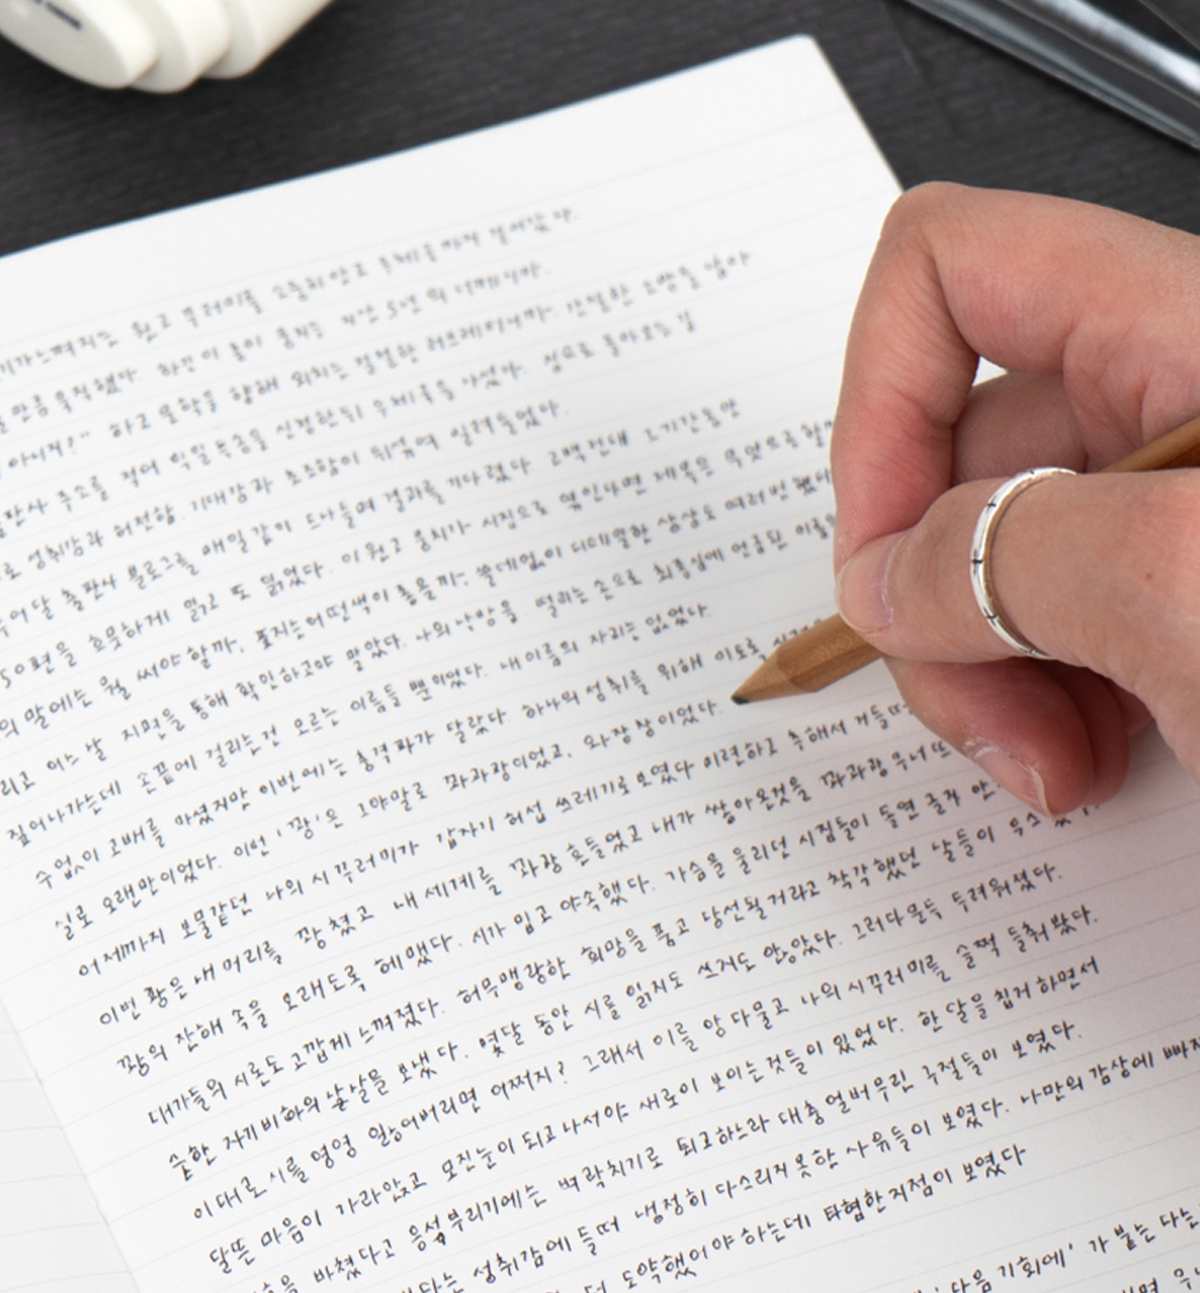 기가 느껴지는 원고 꾸러미를 소중히 안고 우체국까지 걸어갔다.
만큼 묵직했다. 하긴 이 몸이 움직는 지난 5년
하고 문학을 향해 외치는 절절한 러브레이니까. 간절한 소망을 담아
판사 주소를 적어 익일특급을 신청한 뒤 우체국을 나섰다. 집으로 돌아오는 길
로 성취감과 허전함. 기대감과 초조함이 뒤섞여 밀려들었다.
어달 출판사 블로그를 매일같이 드나들며 결과를 기다렸다. 고백건대 그 기간 동안
50편을 흐뭇하게 읽고 또 읽었다. 이 원고 뭉치가 시집으로 엮인다면 제목은 무엇으로 할까
의 말에는 뭘 써야 할까, 표지는 어떤 색이 좋을까; 쓸데없이 디테일한 상상도 여러 번 했다
리고 어느 날 지면을 통해 확인하고야 말았다. 나의 낙방을. 떨리는 손으로 최종심에 언급된 이름을
짚어나가는데 손끝에 걸리는 건 모르는 이름들 뿐이었다. 내 이름의 자리는 없었다.
수없이 고배를 마셨지만 이번에는 충격파가 달랐다. 하나의 성취를 위해 이토록
실로 오랜만이었다. 이번 '꽝'은 그야말로 꽈과광이었고, 와장창이었다.
어제까지 보물같던 나의 시 꾸러미가 갑자기 허섭쓰레기로 보였다 미련하고 추해서 거들떠
이번 꽝은 내 머리를 꽝 쳤고 내 세계를 꽈광 흔들었고 내가 쌓아온 것을 꽈과광 무너뜨
꽝의 잔해 속을 오래도록 헤맸다. 시가 밉고 야속했다. 가슴을 울리던 시집들이 돌연 골칫
대가들의 시론도 고깝게 느껴졌다. 허무맹랑한 희망을 품고 당선될 거라고 착각했던 날들이 우스웠
숱한 자기비하의 날들을 보냈다. 몇달 동안 시를 읽지도 쓰지도 않았다. 그러다 문득 두려워졌다.
이대로 시를 영영 잃어버리면 어쩌지? 그래서 이를 앙다물고 나의 시 꾸러미를 슬쩍 들춰 봤다.
달뜬 마음이 가라앉고 모진 눈이 되고 나서야 새로이 보이는 것들이 있었다. 한 달을 칩거하면서
을 바쳤다고 응석부리기에는 벼락치기로 퇴고하느라 대충 얼버무린 구절들이 보였다.
다는 성취감에 들떠 냉정히 다스리지 못한 사유들이 보였다. 나만의 감상에 빠져
더 도약했어야 하는데 타협한 지점이 보였다
'다음 기회에' 가 붙는 다는